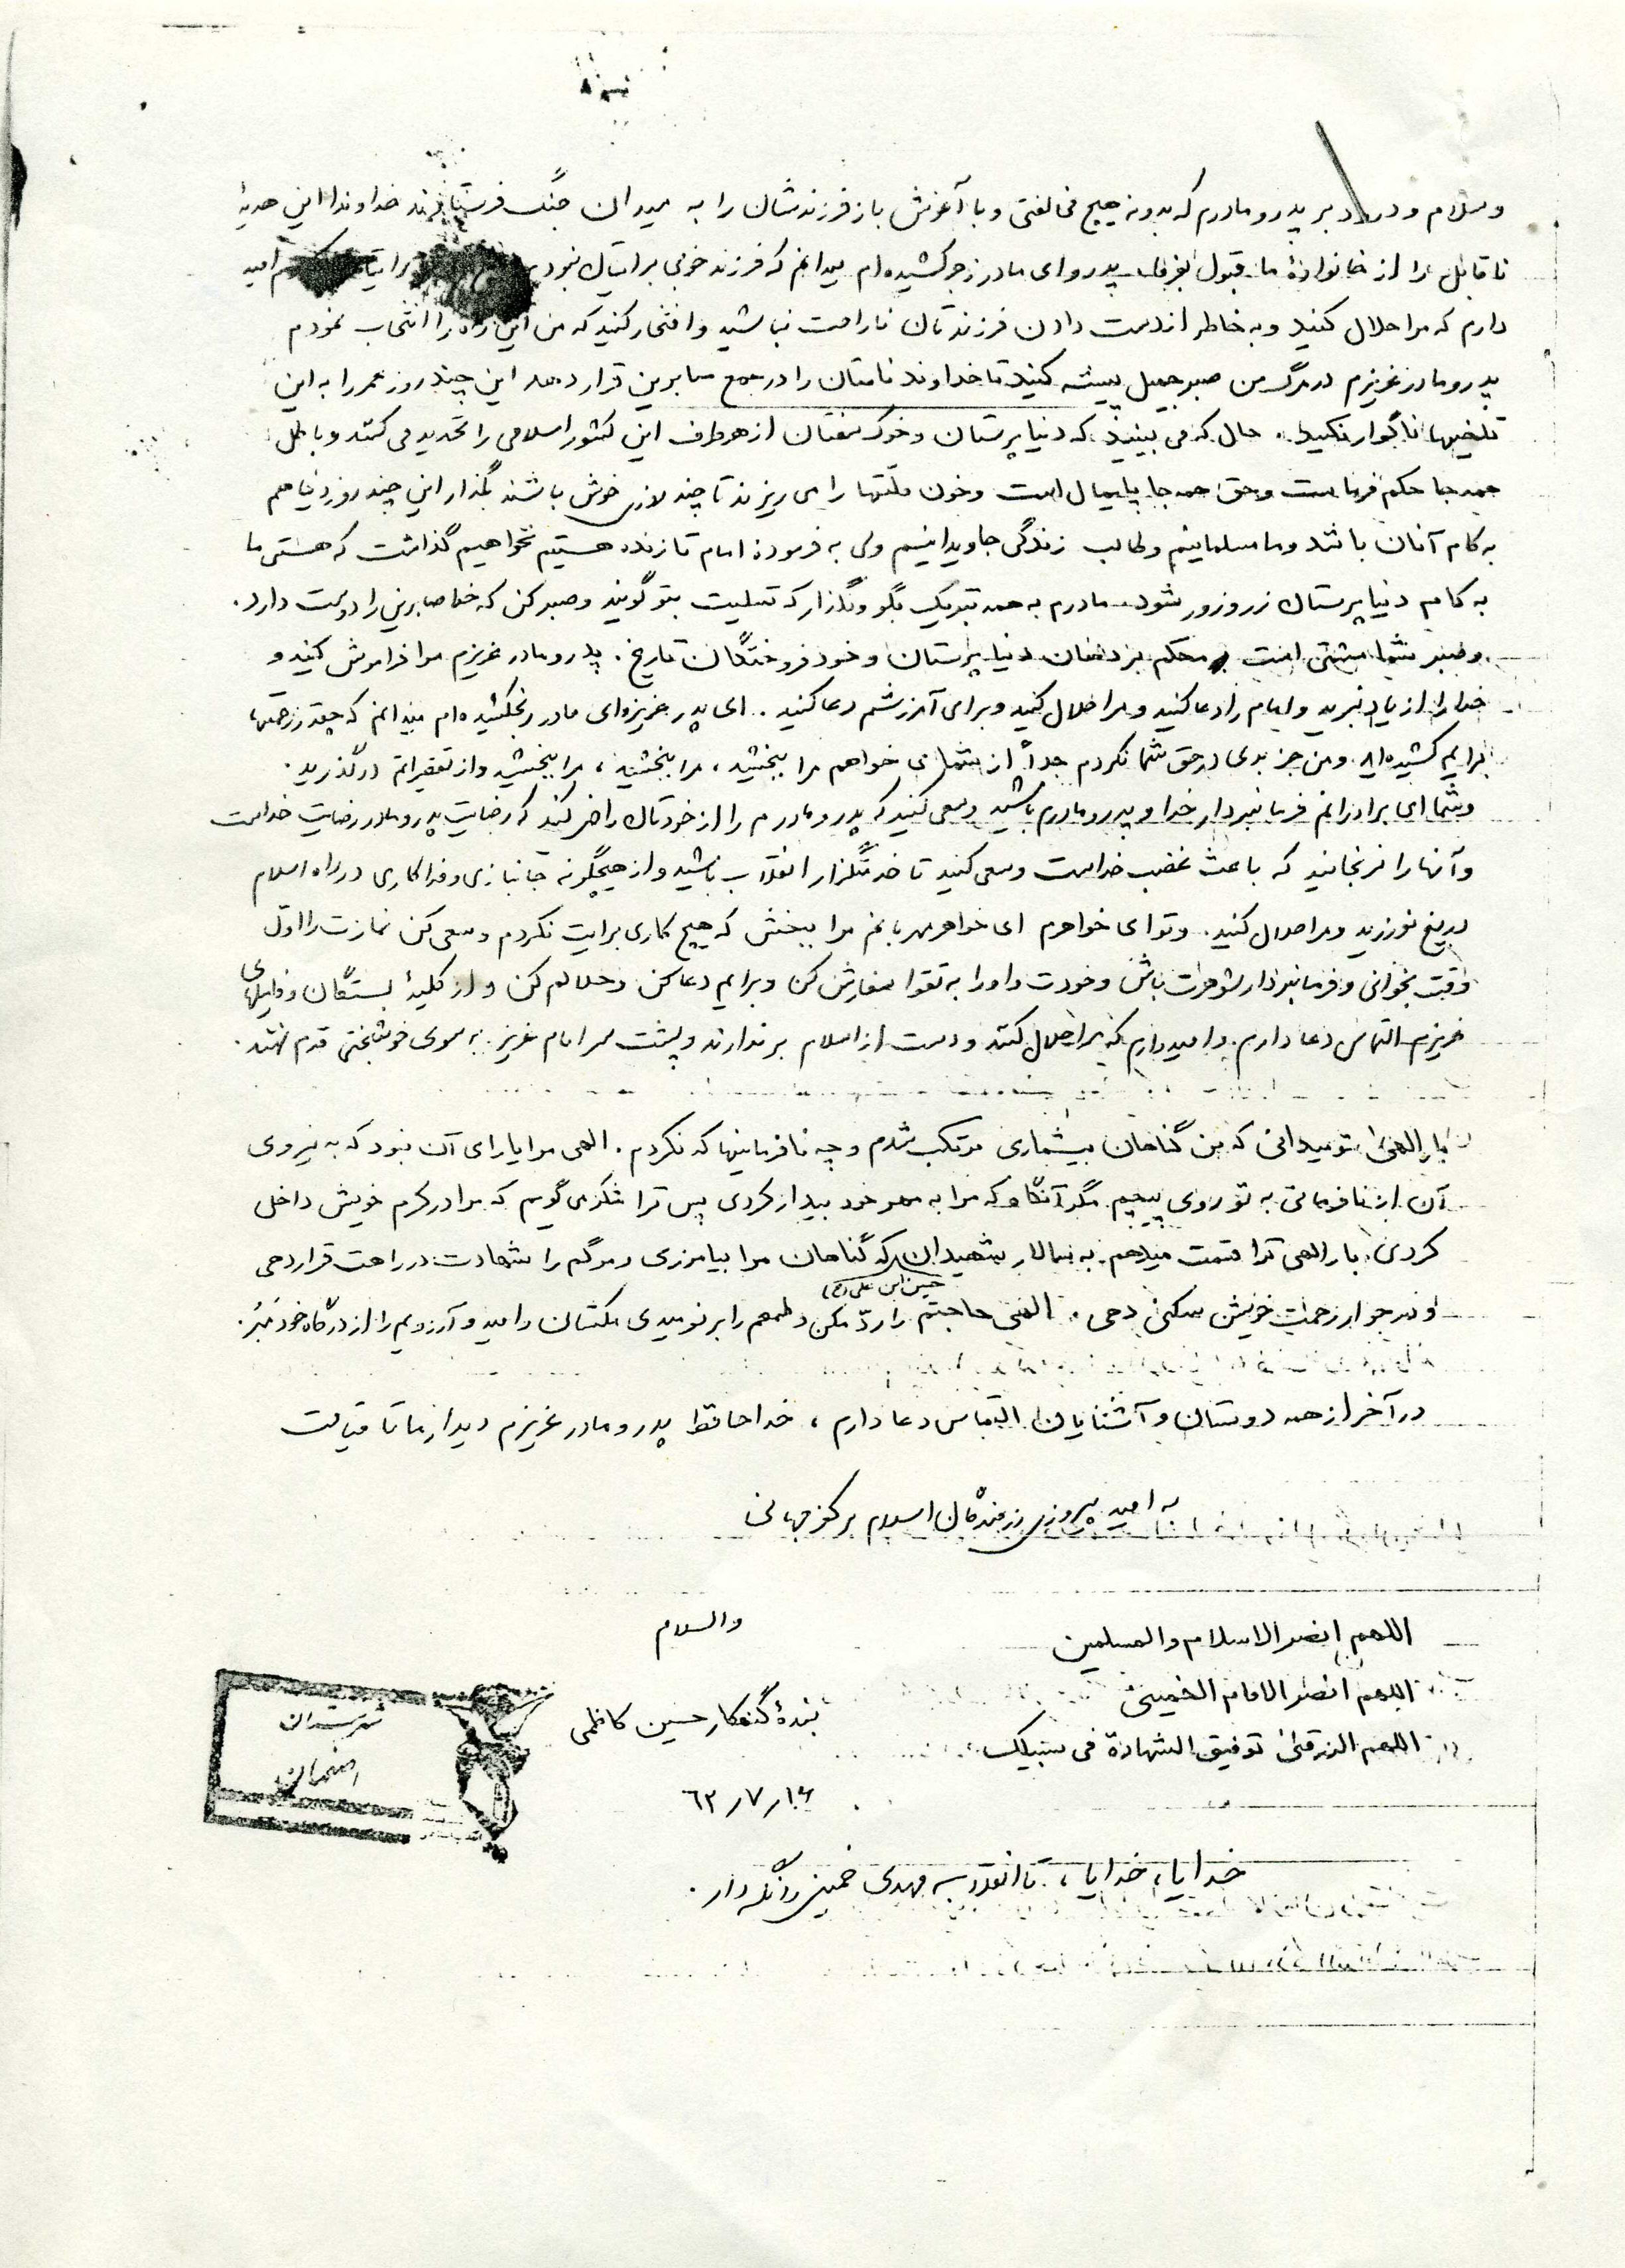 وسلام و درود بر پدر و مادرم که بدونه هیچ مخالفتی و با آغوش باز فرزندشان را به میدان جنگ فرستادند خداوندا این هدیۀ
ناقابل را از خانوادۀ ما قبول بفرما. پدر و ای مادر زجرکشیده ام میدانم که فرزند خوبی برایتان نبودم امید
دارم که مرا حلال کنید و به خاطر از دست دادن فرزندتان ناراحت نباشید و افتخار کنید که من این راه را انتخاب نمودم
پدر و مادر عزیزم در مرگ من صبر جمیل پیشه کنید تا خداوند نامتان را در جمع صابرین قرار دهد این چند روز عمر را به این
تلخیها ناگوار نکنید. حال که می بینید که دنیا پرستان و خوک صفتان از هر طرف این کشور اسلامی را تهدید می کنند و باطل
همه جا حکم فرماست و حق همه جا پایمال است و خون ملتها را می ریزند تا چند روزی خوش باشند بگذار این چند روز دنیا هم
به کام آنان باشد و ما مسلمانیم و طالب زندگی جاویدانیم ولی به فرمودۀ امام تا زنده هستیم نخواهیم گذاشت که هستی ما
به کام دنیا پرستان زر و زور شود. مادرم به همه تبریک بگو و نگذار که تسلیت بتو گویند و صبر کن که خدا صابرین را دوست دارد.
و صبر شما مشتی است محکم بر دهان دنیا پرستان و خود فروختگان تاریخ. پدر و مادر عزیزم مرا فراموش کنید و
خدا را از یاد نبرید و امام را دعا کنید و مرا حلال کنید و برای آمرزشم دعا کنید. ای پدر عزیز و ای مادر رنجکشیده ام میدانم که چقدر زحمتها
برایم کشیده اید و من جز بدی در حق شما نکردم جداً از شما می خواهم مرا ببخشید، مرا ببخشید، مرا ببخشید و از تقصیراتم درگذرید.
و شما ای برادرانم فرمانبردار خدا و پدر و مادرم باشید و سعی کنید که پدر و مادرم را از خودتان راضی کنید که رضایت پدر و مادر رضایت خداست
و آنها را نرنجانید که باعث غضب خداست و سعی کنید تا خدمتگزار انقلاب باشید و از هیچگونه جانبازی و فداکاری در راه اسلام
دریغ نورزید و مرا حلال کنید. و تو ای خواهرم ای خواهر مهربانم مرا ببخش که هیچ کاری برایت نکردم و سعی کن نمازت را اول
وقت بخوانی و فرمانبردار شوهرت باش و خودت و او را به تقوا سفارش کن و برایم دعا کن و حلالم کن و از کلیۀ بستگان و فامیلهای
عزیزم التماس دعا دارم و امیدوارم که مرا حلال کنند و دست از اسلام برندارند و پشت سر امام عزیز به سوی خوشبختی قدم نهند.
بار الهی تو میدانی که من گناهان بیشماری مرتکب شدم و چه نافرمانیها که نکردم. الهی مرا یارای آن نبود که به نیروی
آن از نافرمانی به تو روی پیچم مگر آنگاه که مرا به مهر خود بیدار کردی پس ترا شکر می گویم که مرا در کرم خویش داخل
کردی. بار الهی ترا قسمت میدهم به سالار شهیدان که گناهان مرا بیامرزی و مرگم را شهادت در راهت قرار دهی
حسین ابن علی (ع)
و در جوار رحمت خویش سکنی دهی. الهی حاجتم را رد مکن و طمعم را بر نومیدی مکشان و امید و آرزویم را از درگاه خود مَبُر.
در آخر از همه دوستان و آشنایان التماس دعا دارم، خداحافظ پدر و مادر عزیزم دیدار ما تا قیامت
به امید پیروزی رزمندگان اسلام بر کفر جهانی
والسلام
اللهم انصر الاسلام و المسلمین
اللهم انصر الامام الخمینی
بندۀ گنهکار حسین کاظمی
اللهم الرزقنی توفیق الشهادة فی سبیلک
۶۲/۷/۱۶
خدایا، خدایا، تا انقلاب مهدی خمینی را نگه دار.